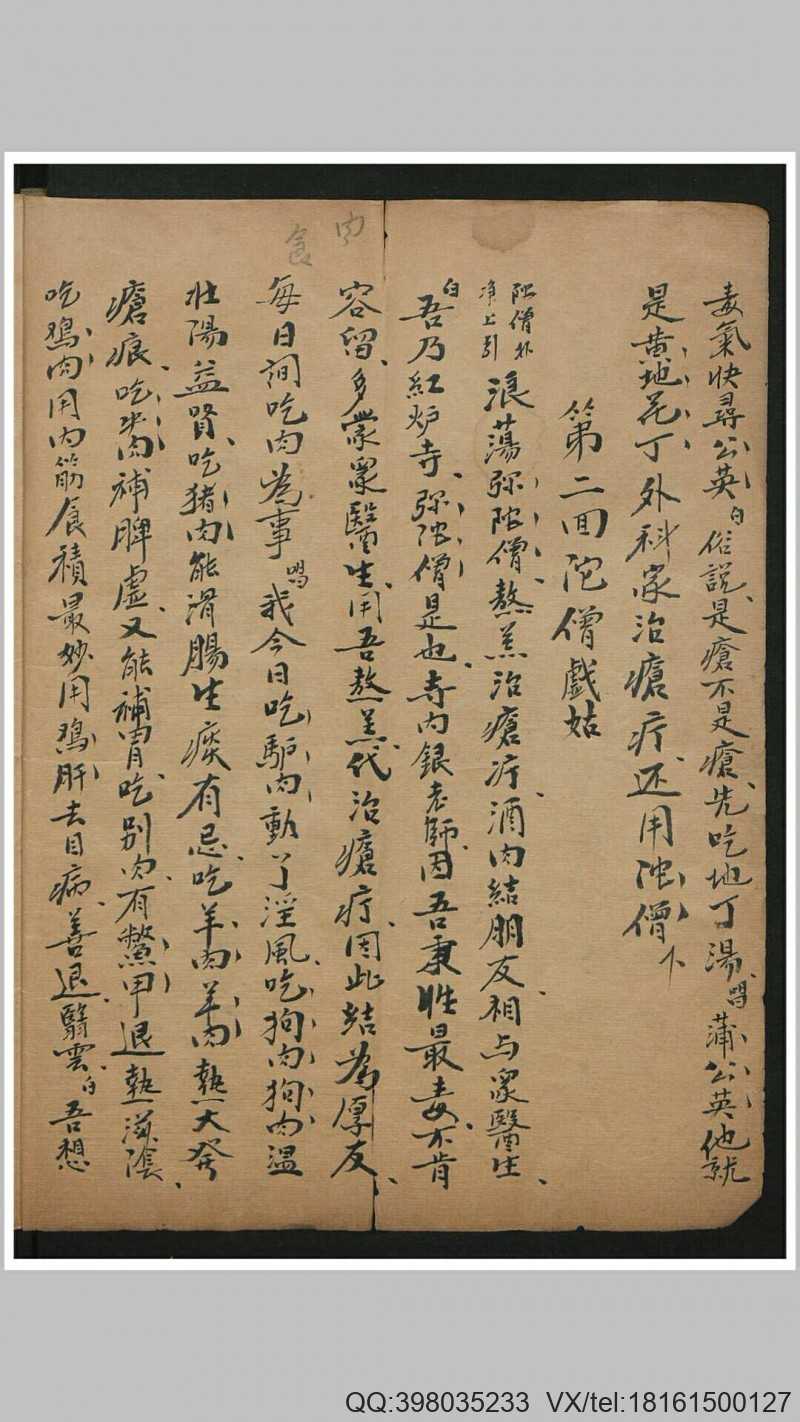 毒氣快尋公英白俗說是瘡不是瘡先吃地丁湯唱蒲公英他就
是黄地花丁外科家治瘡疔还用陀僧下
第二回陀僧戲姑
陀僧外
净上引
浪蕩弥陀僧熬羔治瘡疔酒肉結朋友相与衆醫生
白吾乃紅炉寺弥陀僧是也寺内銀老師因吾秉性最毒不肯
容留多蒙衆醫生用吾熬羔代治瘡疔因此結為厚友
每日间吃肉為事唱我今日吃驴肉動了淫風吃狗肉狗肉温
壮陽益肾吃猪肉能滑腸生痰有忌吃羊肉羊肉熱大発
瘡痕吃肉補脾虚又能補胃吃别肉有鱉甲退熱滋陰
吃鸡肉用内筋食積最妙用鸡肝去目病善退翳雲白吾想
食肉
QQ:398035233 VX/tel:18161500127